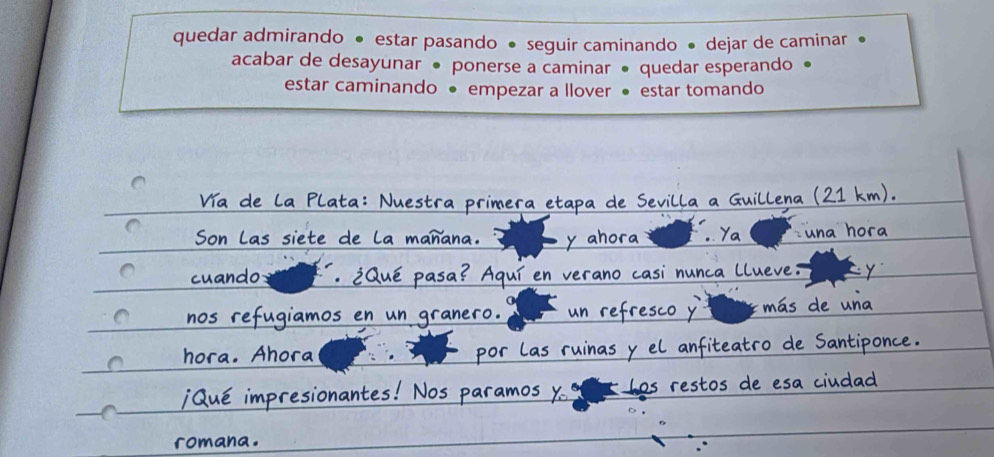 quedar admirando • estar pasando • seguir caminando • dejar de caminar •
acabar de desayunar • ponerse a caminar • quedar esperando •
estar caminando • empezar a llover • estar tomando
Vía de la Plata: Nuestra primera etapa de Sevilla a Guillena (21 km).
Son las siete de la mañana. y ahora . Ya una hora
cuando . ¿Qué pasa? Aquí en verano casi nunca llueve. y
nos refugiamos en un granero. un refresco y más de una
hora. Ahora . por las ruinas y el anfiteatro de Santiponce.
¡Qué impresionantes! Nos paramos y los restos de esa ciudad
romana.